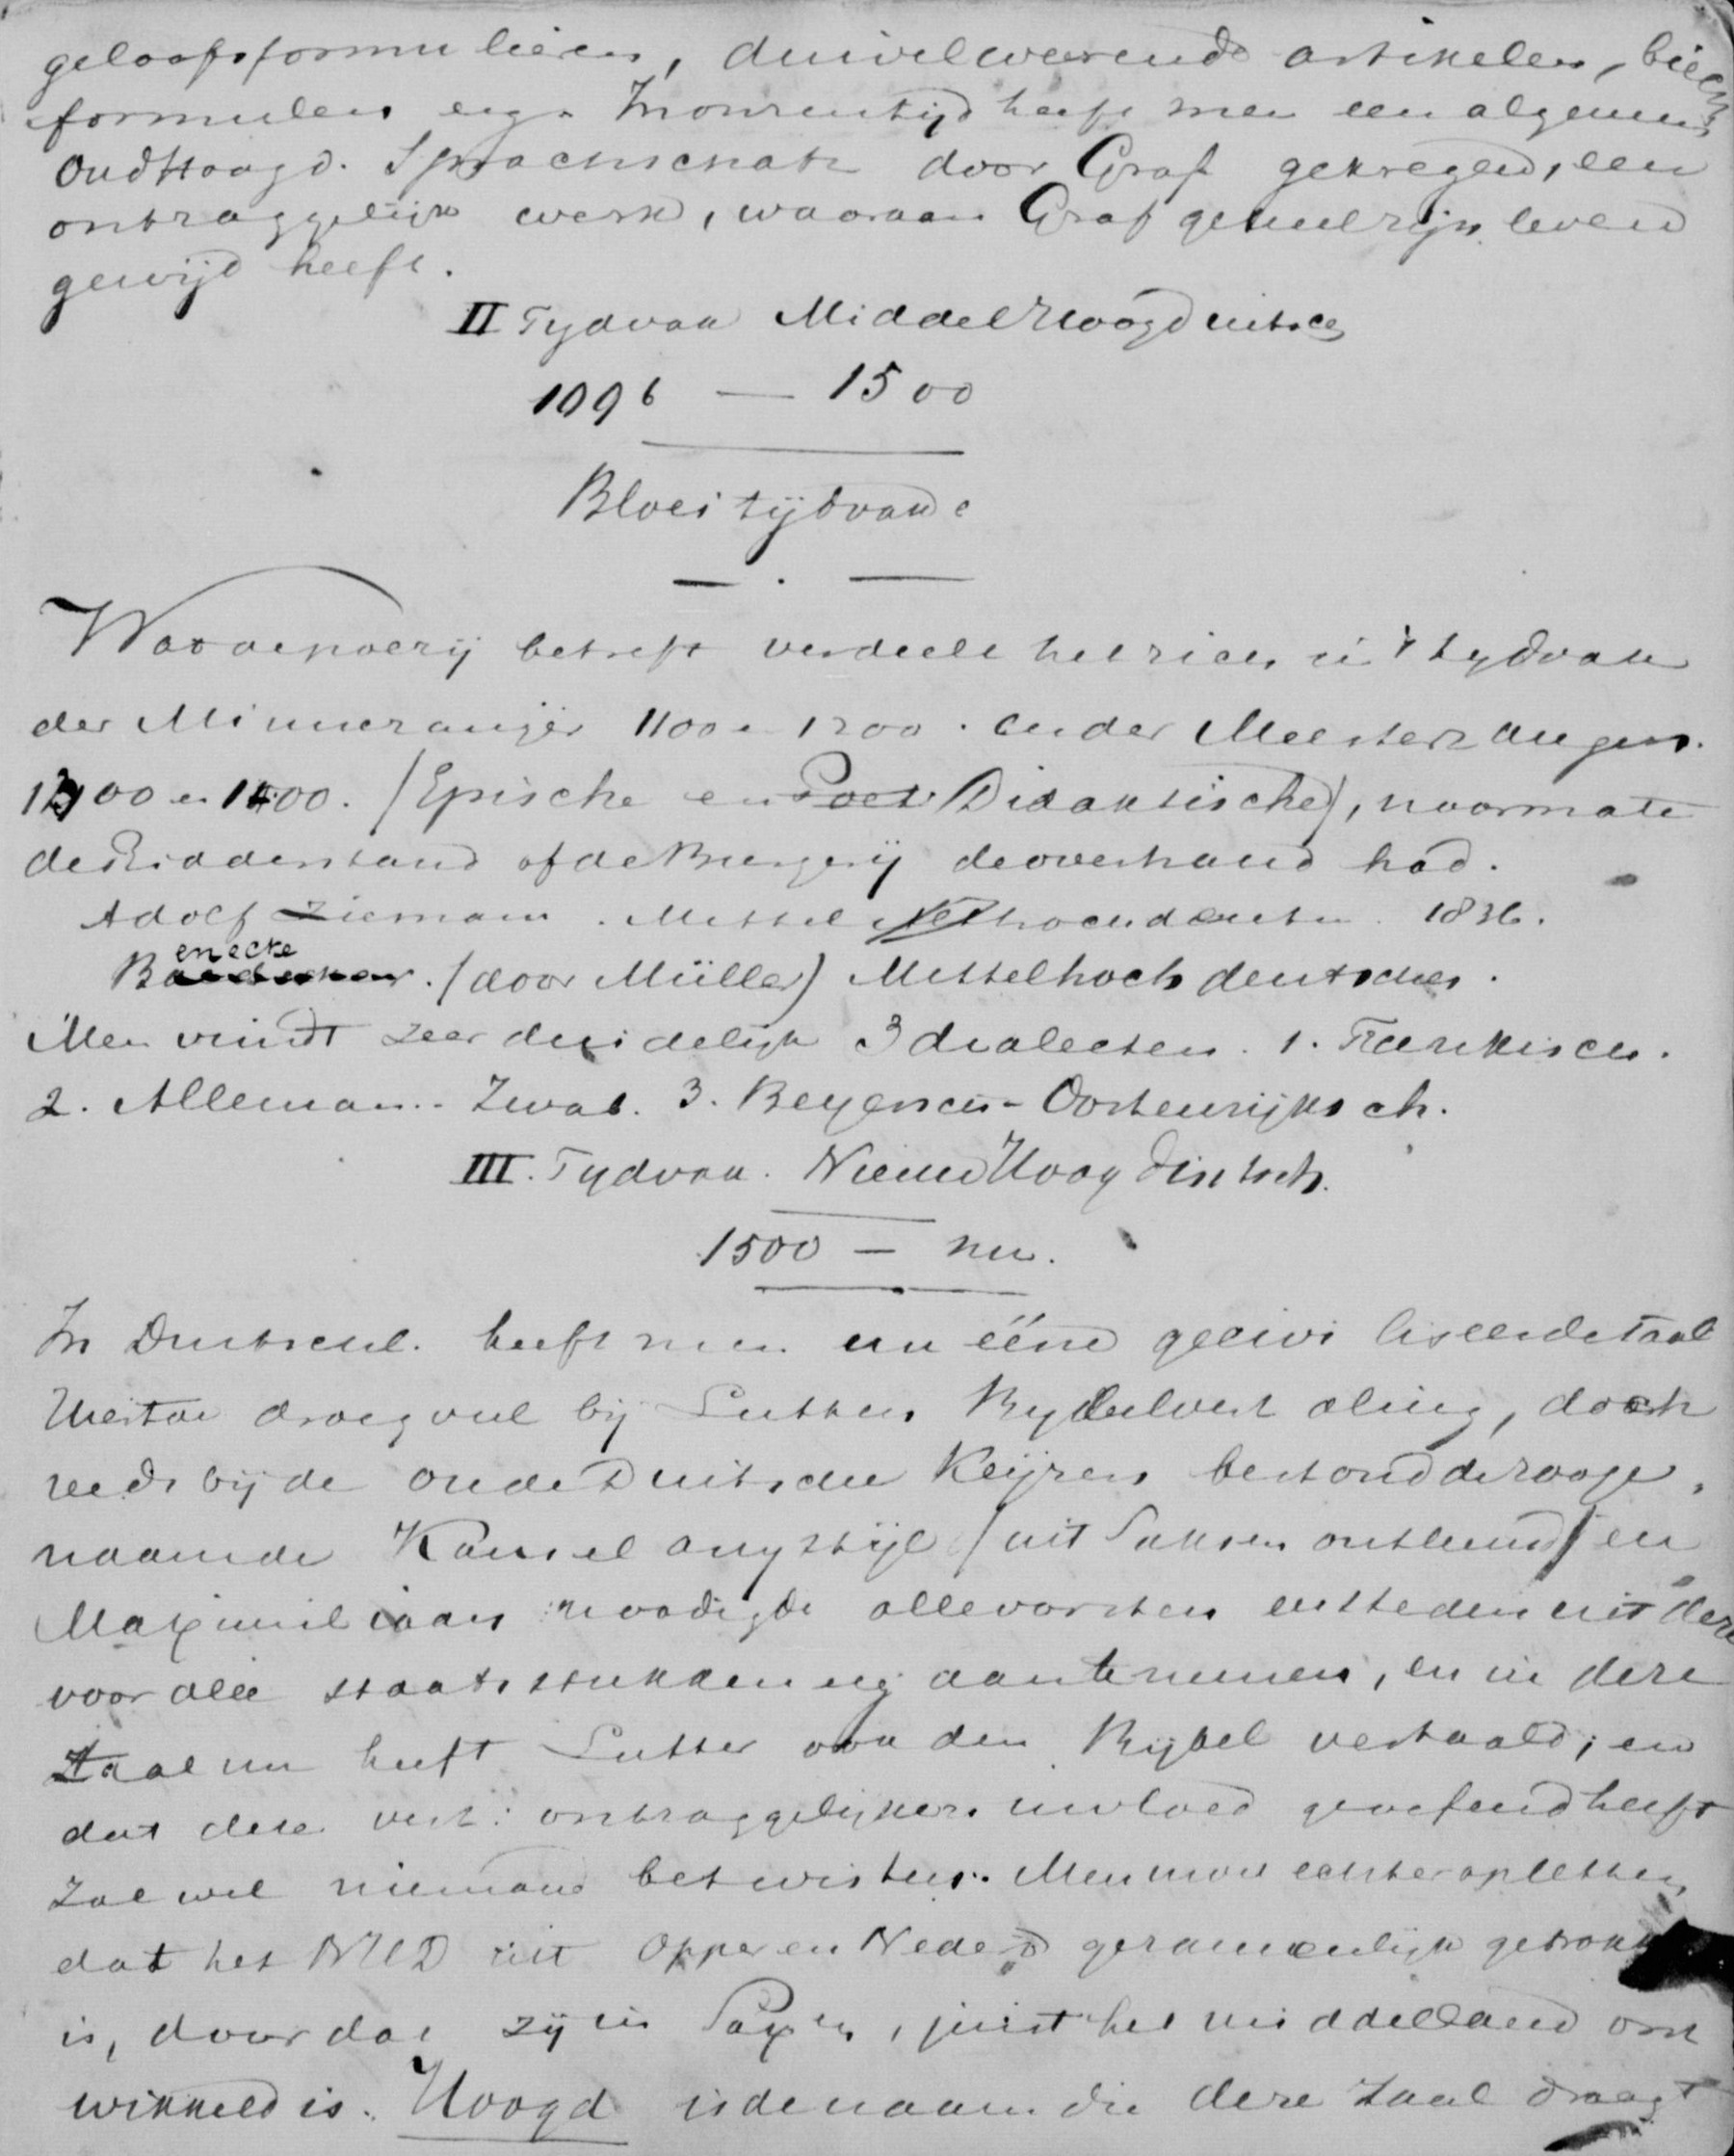 geloofsformulieren, duivelwerende artikelen, biecht
formulen enz. In onzentijd heeft men een algemeen
OudHoogd. Sprachschatz door Graf gekregen, een
ontzaggelijk werk, waaraan Graf geheel zijn leven
gewijd heeft.
II Tydvak Middelhoogduitsch
1096 — 1500
Bloeitijdvak
Wat de poëzij betreft verdeelt het zich in 't tydvak
der Minnezanger 1100 en 1200. en der Meesterzangers.
1300 en 1400. (Epische en Poet Didaktische), naarmate
de Ridderstand of de Burgerij de overhand had.
Adolf Ziemann. Mittel hochdeutsch. 1836.
Benecke. (door Müller) Mittelhochdeutsches.
Men vindt zeer duidelijk 3 dialecten. 1. Frankisch.
2. Alleman.- Zwab. 3. Beyersch-Oostenrijksch.
III. Tydvak. NieuwHoogduitsch.
1500 — nu.
In Duitschl. heeft men nu ééne geciviliseerde taal
Hiertoe droeg veel bij Luthers Bybelvertaling, doch
reeds bij de oude Duitsche Keijzers bestond de zooge-
naamde Kanselarystijl (uit Saksen ontleend) en
Maximiliaan noodigde alle vorsten en steden uit deze
voor alle staatsstukken enz aan te nemen, en in deze
taal nu heeft Luther ook den Bijbel vertaald; en
dat deze vert: ontzaggelijken invloed geoefend heeft
zal wel niemand betwisten. Men moet echter opletten,
dat het NHD uit Opper en Neder D gezamenlijk getrokken
is, doordat zij in Saxen, juist het middelland ont
wikkeld is. Hoogd is de naam die deze taal draagt